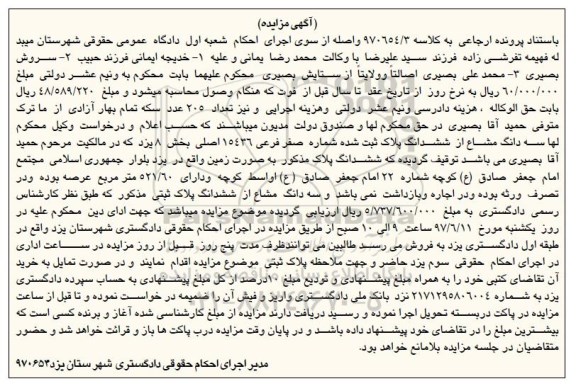 ( آگهی مزایده)
باستناد پرونده ارجاعی به کلاسه ۹۷۰۶۵۴/۳ واصله از سوی اجرای احکام شعبه اول دادگاه عمومی حقوقی شهرستان میبد
له فهیمه تفرشی زاده فرزند سید علیرضا با وکالت محمد رضا یمانی و علیه ۱- خدیجه ایمانی فرزند حبیب ۲- سروش
بصیری ۳- محمد علی بصیری اصالتا وولایتا از ستایش بصیری محکوم علیهما بابت محکوم به ونیم عشر دولتی مبلغ
۶۰/۰۰۰/۰۰۰ ریال به نرخ روز از تاریخ عقد تا سال قبل از فوت که هنگام وصول محاسبه میشود و مبلغ ۴۸/۵۸۹/۲۲۰ ریال
بابت حق الوکاله ، هزینه دادرسی ونیم عشر دولتی وهزینه اجرایی و نیز تعداد ۲۰۵ عدد سکه تمام بهار آزادی از ما ترک
متوفی حمید آقا بصیری در حق محکوم لها و صندوق دولت مدیون میباشند که حسب اعلام و درخواست وکیل محکوم
لها سه دانگ مشاع از ششدانگ پلاک ثبت شده شماره صفر فرعی ۱۵۴۳۶ اصلی بخش ۸ یزد که در مالکیت مرحوم حمید
آقا بصیری می باشد توقیف گردیده که ششدانگ پلاک مذکور به صورت زمین واقع در یزد بلوار جمهوری اسلامی مجتمع
امام جعفر صادق (ع) کوچه شماره ۲۲ امام جعفر صادق (ع) اواسط کوچه ودارای ۵۲۱/۶۰ متر مربع عرصه بوده ودر
تصرف ورثه بوده ودر اجاره وبازداشت نمی باشد و سه دانگ مشاع از ششدانگ پلاک ثبتی مذکور که طبق نظر کارشناس
رسمی دادگستری به مبلغ ۵/۷۳۷/۶۰۰/۰۰۰ ریال ارزیابی گردیده موضوع مزایده میباشد که جهت ادای دین محکوم علیه در
روز یکشنبه مورخ ۹۷/۶/۱۱ ساعت ۹ الی ۱۰ صبح از طریق مزایده در اجرای احکام حقوقی دادگستری شهرستان یزد واقع در
طبقه اول دادگستری یزد به فروش می رسد طالبین می توانندظرف مدت پنج روز قبل از روز مزایده در ساعت اداری
در اجرای احکام حقوقی سوم یزد حاضر و جهت ملاحظه پلاک ثبتی موضوع مزایده اقدام نمایند و در صورت تمایل به خرید
آن تقاضای کتبی خود را به همراه مبلغ پیشنهادی و تودیع مبلغ ۱۰درصد از کل مبلغ پیشنهادی به حساب سپرده دادگستری
یزد به شماره ۲۱۷۱۲۹۵۸۰۶۰۰۴ نزد بانک ملی دادگستری واریز و فیش آن را ضمیمه در خواست نموده و تا قبل از ساعت
مزایده در پاکت دربسته تحویل اجرا نموده و رسید دریافت دارند مزایده از مبلغ کارشناسی شده آغاز و برنده کسی است که
بیشترین مبلغ را در تقاضای خود پیشنهاد داده باشد و در پایان وقت مزایده درب پاکت ها باز و قرائت خواهد شد و حضور
متقاضیان در جلسه مزایده بلامانع خواهد بود.
مدیر اجرای احکام حقوقی دادگستری شهرستان یزد۹۷۰۶۵۳